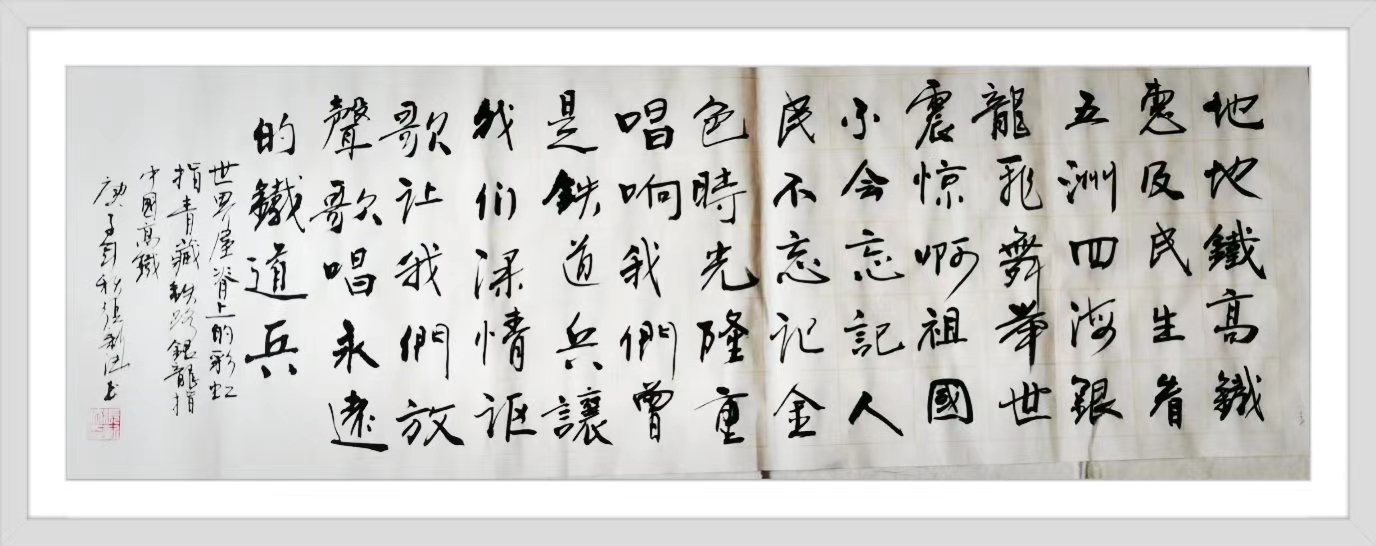 地地鐵高鐵
惠及民生看
五洲四海銀
龍飛舞举世
震惊啊祖國
不会忘記人
民不忘记金
色時光隆重
唱响我們曾
是鉄道兵讓
我们深情讴
歌让我們放
聲歌唱永遠
的鐵道兵
世界屋脊上的彩虹
指青藏鉄路銀龍指
中國高鐵
庚子秋張书